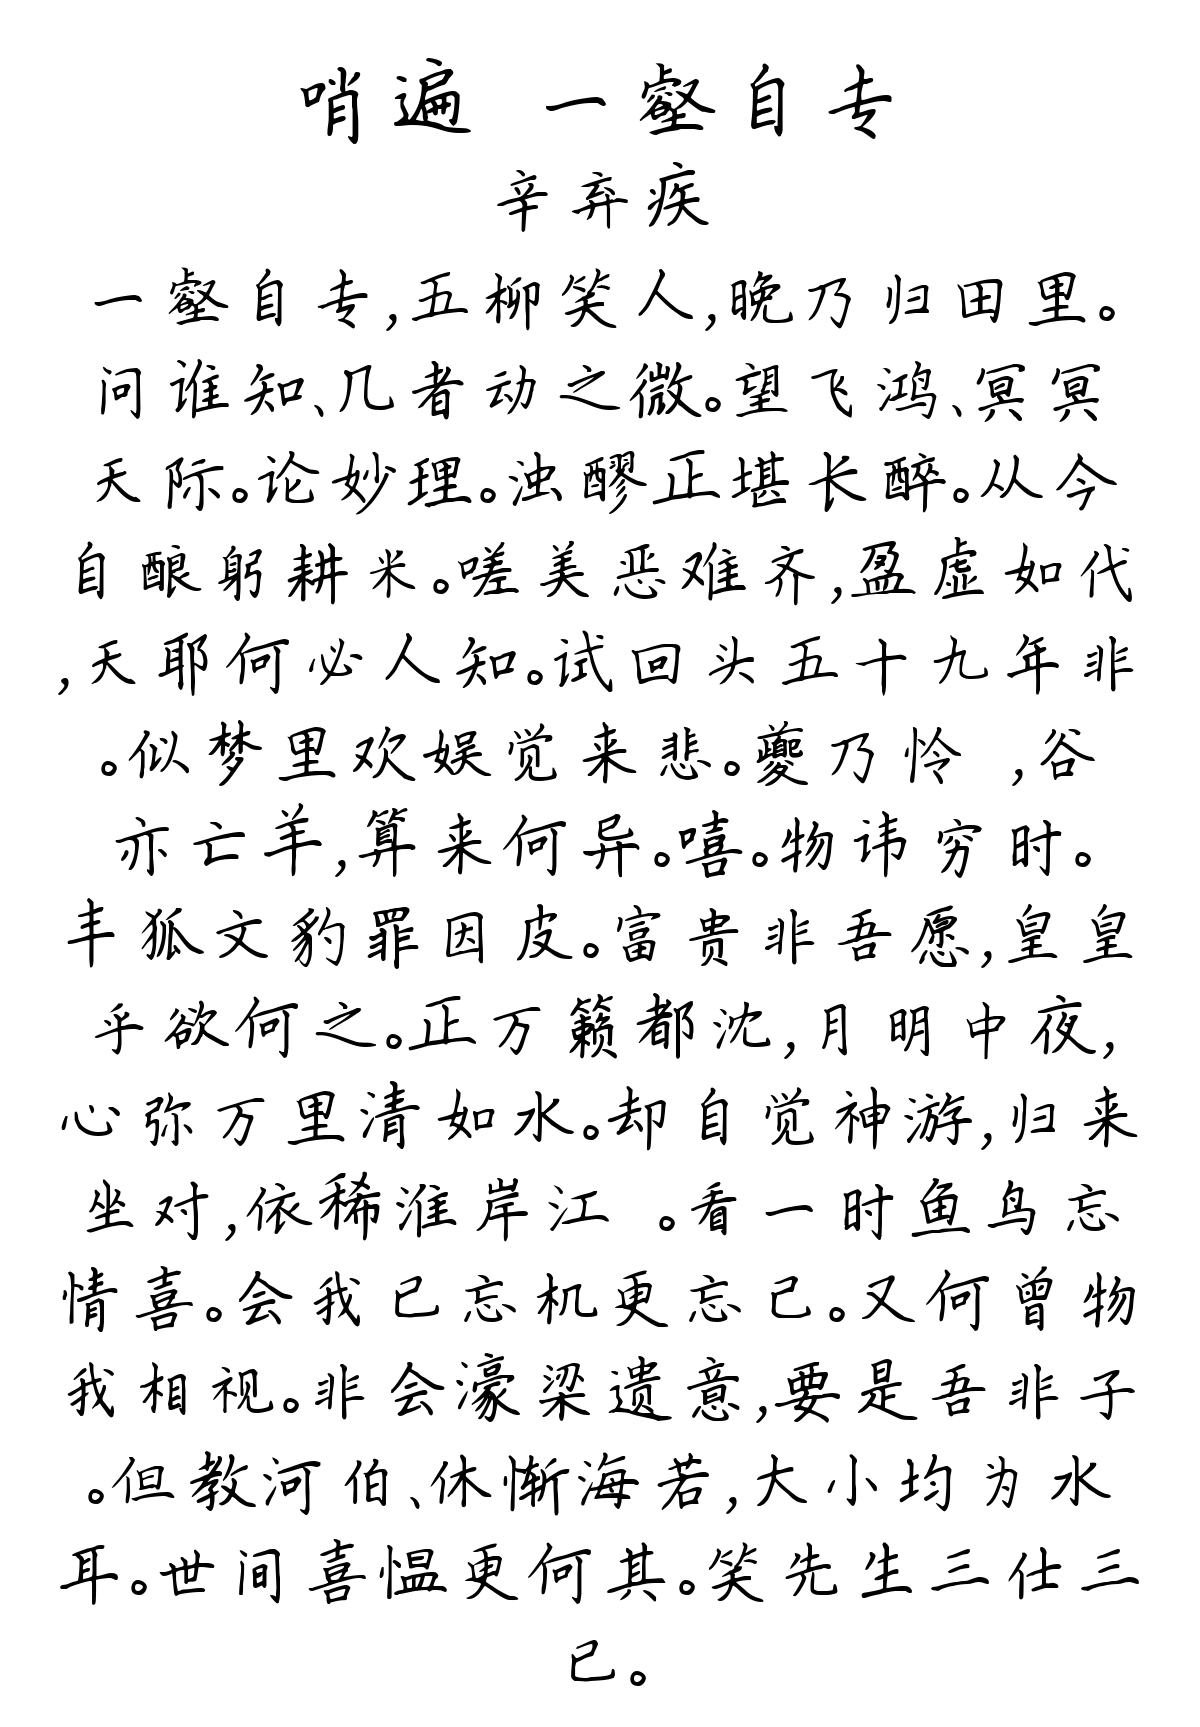 哨遍 一壑自专
辛弃疾
一壑自专,五柳笑人,晚乃归田里。
问谁知、几者动之微。望飞鸿、冥冥
天际。论妙理。浊醪正堪长醉。从今
自酿躬耕米。嗟美恶难齐,盈虚如代
,天耶何必人知。试回头五十九年非
。似梦里欢娱觉来悲。夔乃怜 ,谷
亦亡羊,算来何异。嘻。物讳穷时。
丰狐文豹罪因皮。富贵非吾愿,皇皇
乎欲何之。正万籁都沈,月明中夜,
心弥万里清如水。却自觉神游,归来
坐对,依稀淮岸江 。看一时鱼鸟忘
情喜。会我已忘机更忘己。又何曾物
我相视。非会濠梁遗意,要是吾非子
。但教河伯、休惭海若,大小均为水
耳。世间喜愠更何其。笑先生三仕三
已。